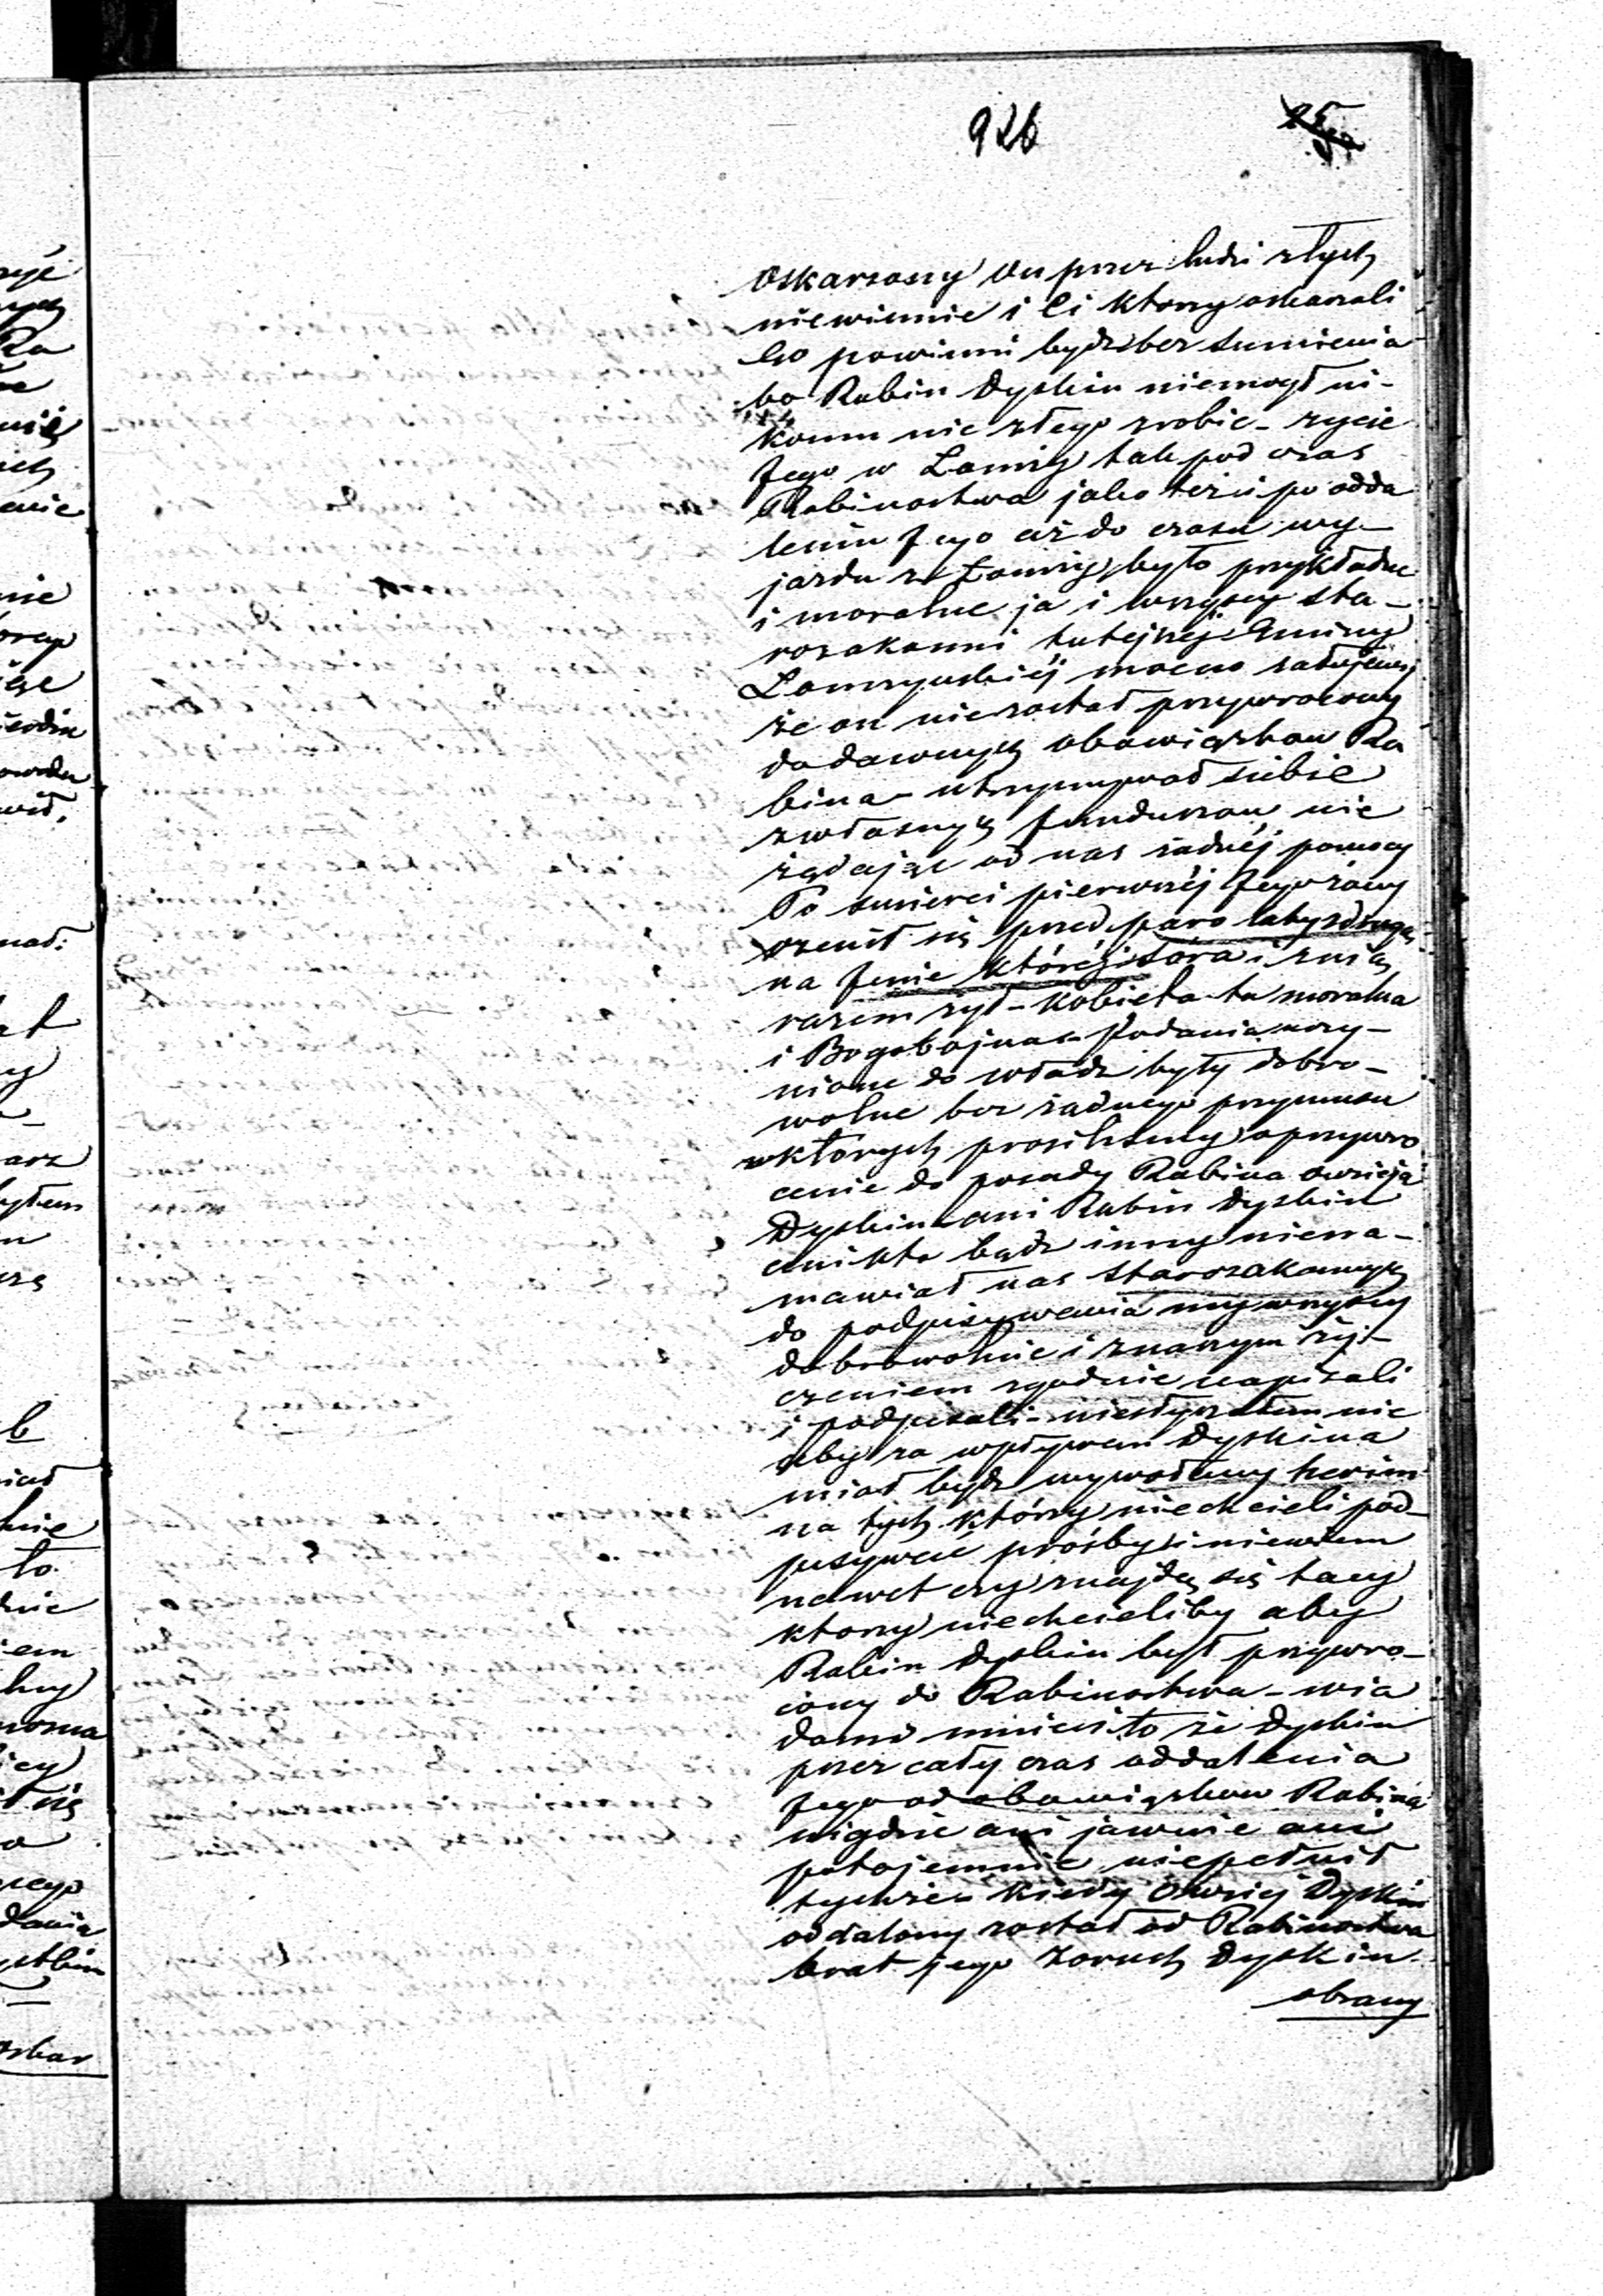 926
oskarzony on przez ludzi złych
niewinnie i Ci ktorzy oskarzali
Go powinni bydz bez sumienia
bo Rabin Dyskin niemogł ni-
komu nic złego zrobic - zycie
Jego w Łomzy tak pod czas
Rabinostwa jako też i po odda
leniu Jego aż do czasu wy-
jazdu z Łomży było przykładne
i moralne ja i wszyscy sta-
rozakonni tutejszej Gminy
Łomzynskiéj mocno załujemy
że on niezostał przywrocony
do dawnych obowiązkow Ra
bina - utrzymywał siebie
zwłasnych funduszow nie
żądając od nas żadnéj pomocy
Po smierci pierwszéj Jego żony
ozenił się przed paro laty z drugą
na Jmie któréj Sora i znią
razem zył - Kobieta ta moralna
i Bogobojna - Podania uczy-
nione do władz były dobro-
wolne bez żadnego przymusu
wktórych prosiliśmy o przywro
cenie do posady Rabina Owzieja
Dyskina - ani Rabin Dyskin
ani kto bądz inny niena-
mawiał nas starozakonnych
do podpisywania my wszyscy
dobrowolnie i znaszym ży-
czeniem zgodnie napisali
i podpisali - niesłyszałem nic
aby za wpływem Dyskina
miał bydz wywołany herim
na tych którzy niechcieli pod-
pisywać prośby i niewiem
nawet czy znajdą się tacy
ktorzy niechcieliby aby
Rabin Dyskin był przywro-
cony do Rabinostwa - wia
domo mnie i to że Dyskin
przez cały czas oddalenia
Jego od obowiązkow Rabina
nigdzie ani jawnie ani
potajemnie niepełnił
tychże - Kiedy Owziej Dyskin
oddalony został od Rabinostwa
brat jego Zoruch Dyskin
obrany